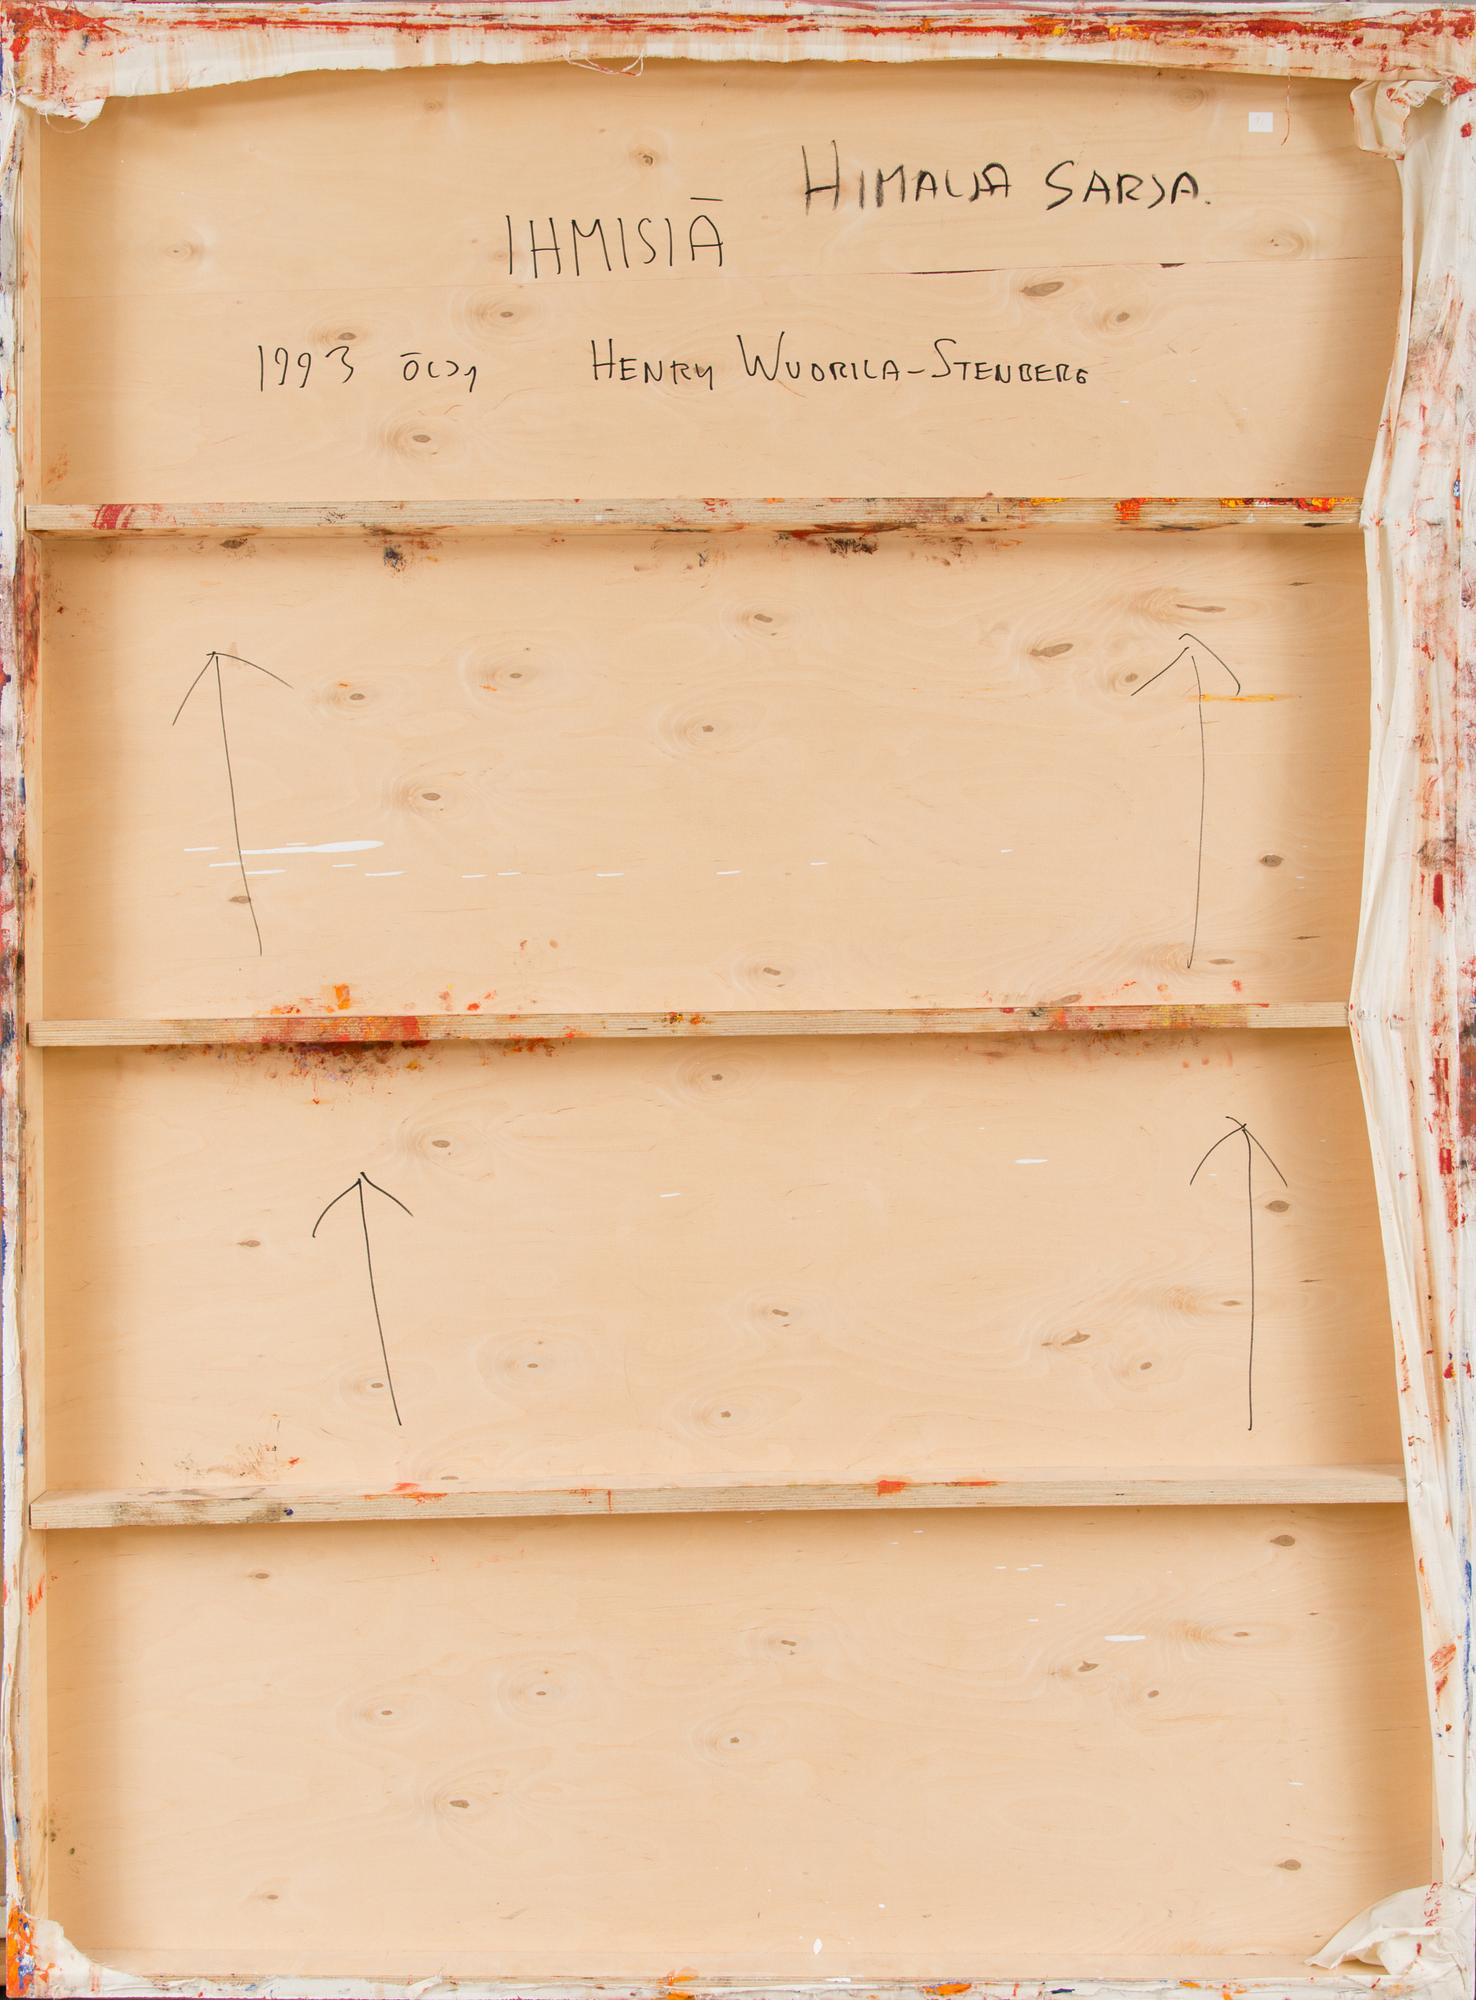 HIMALIA SARJA.
IHMISIÄ
1993 ÖLJY HENRY WUORILA-STENBERG